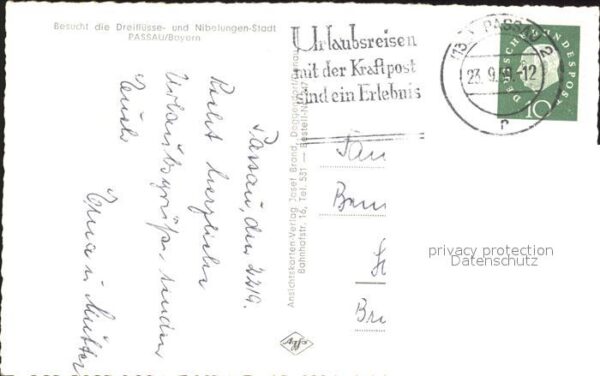 Besucht die Dreiflüsse- und Nibelungen-Stadt
PASSAU/Bayern
Urlaubsreisen
mit der Kraftpost
sind ein Erlebnis
(13b) PASSAU 2
23.9.  -12
DEUTSCHE BUNDESPOST
10
Passau, den 22.9.
Recht herzliche
Urlaubsgrüße senden
Euch
Erna u. Mutter
Ansichtskarten-Verlag Josef Brand, Deggendorf/Donau
Bahnhofstr. 16, Tel. 551 — Bestell-Nr.
Agfa
Fam
privacy protection
Datenschutz